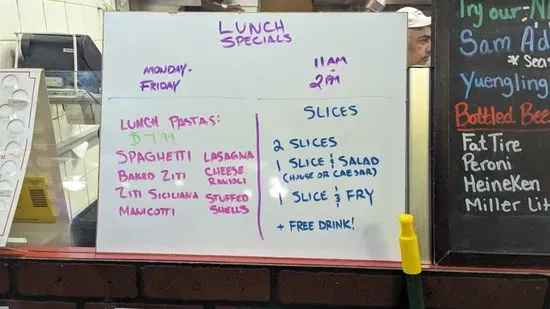 LUNCH
SPECIALS
MONDAY-
FRIDAY
11AM-
2PM
LUNCH PASTAS:
$7.99
SPAGHETTI
BAKED ZITI
ZITI SICILIANA
MANICOTTI
LASAGNA
CHEESE
RAVIOLI
STUFFED
SHELLS
SLICES
2 SLICES
1 SLICE & SALAD
(HOUSE OR CAESAR)
1 SLICE & FRY
+ FREE DRINK!
Try our
Sam Ad
Yuengling
Bottled Bee
Fat Tire
Peroni
Heineken
Miller Lit